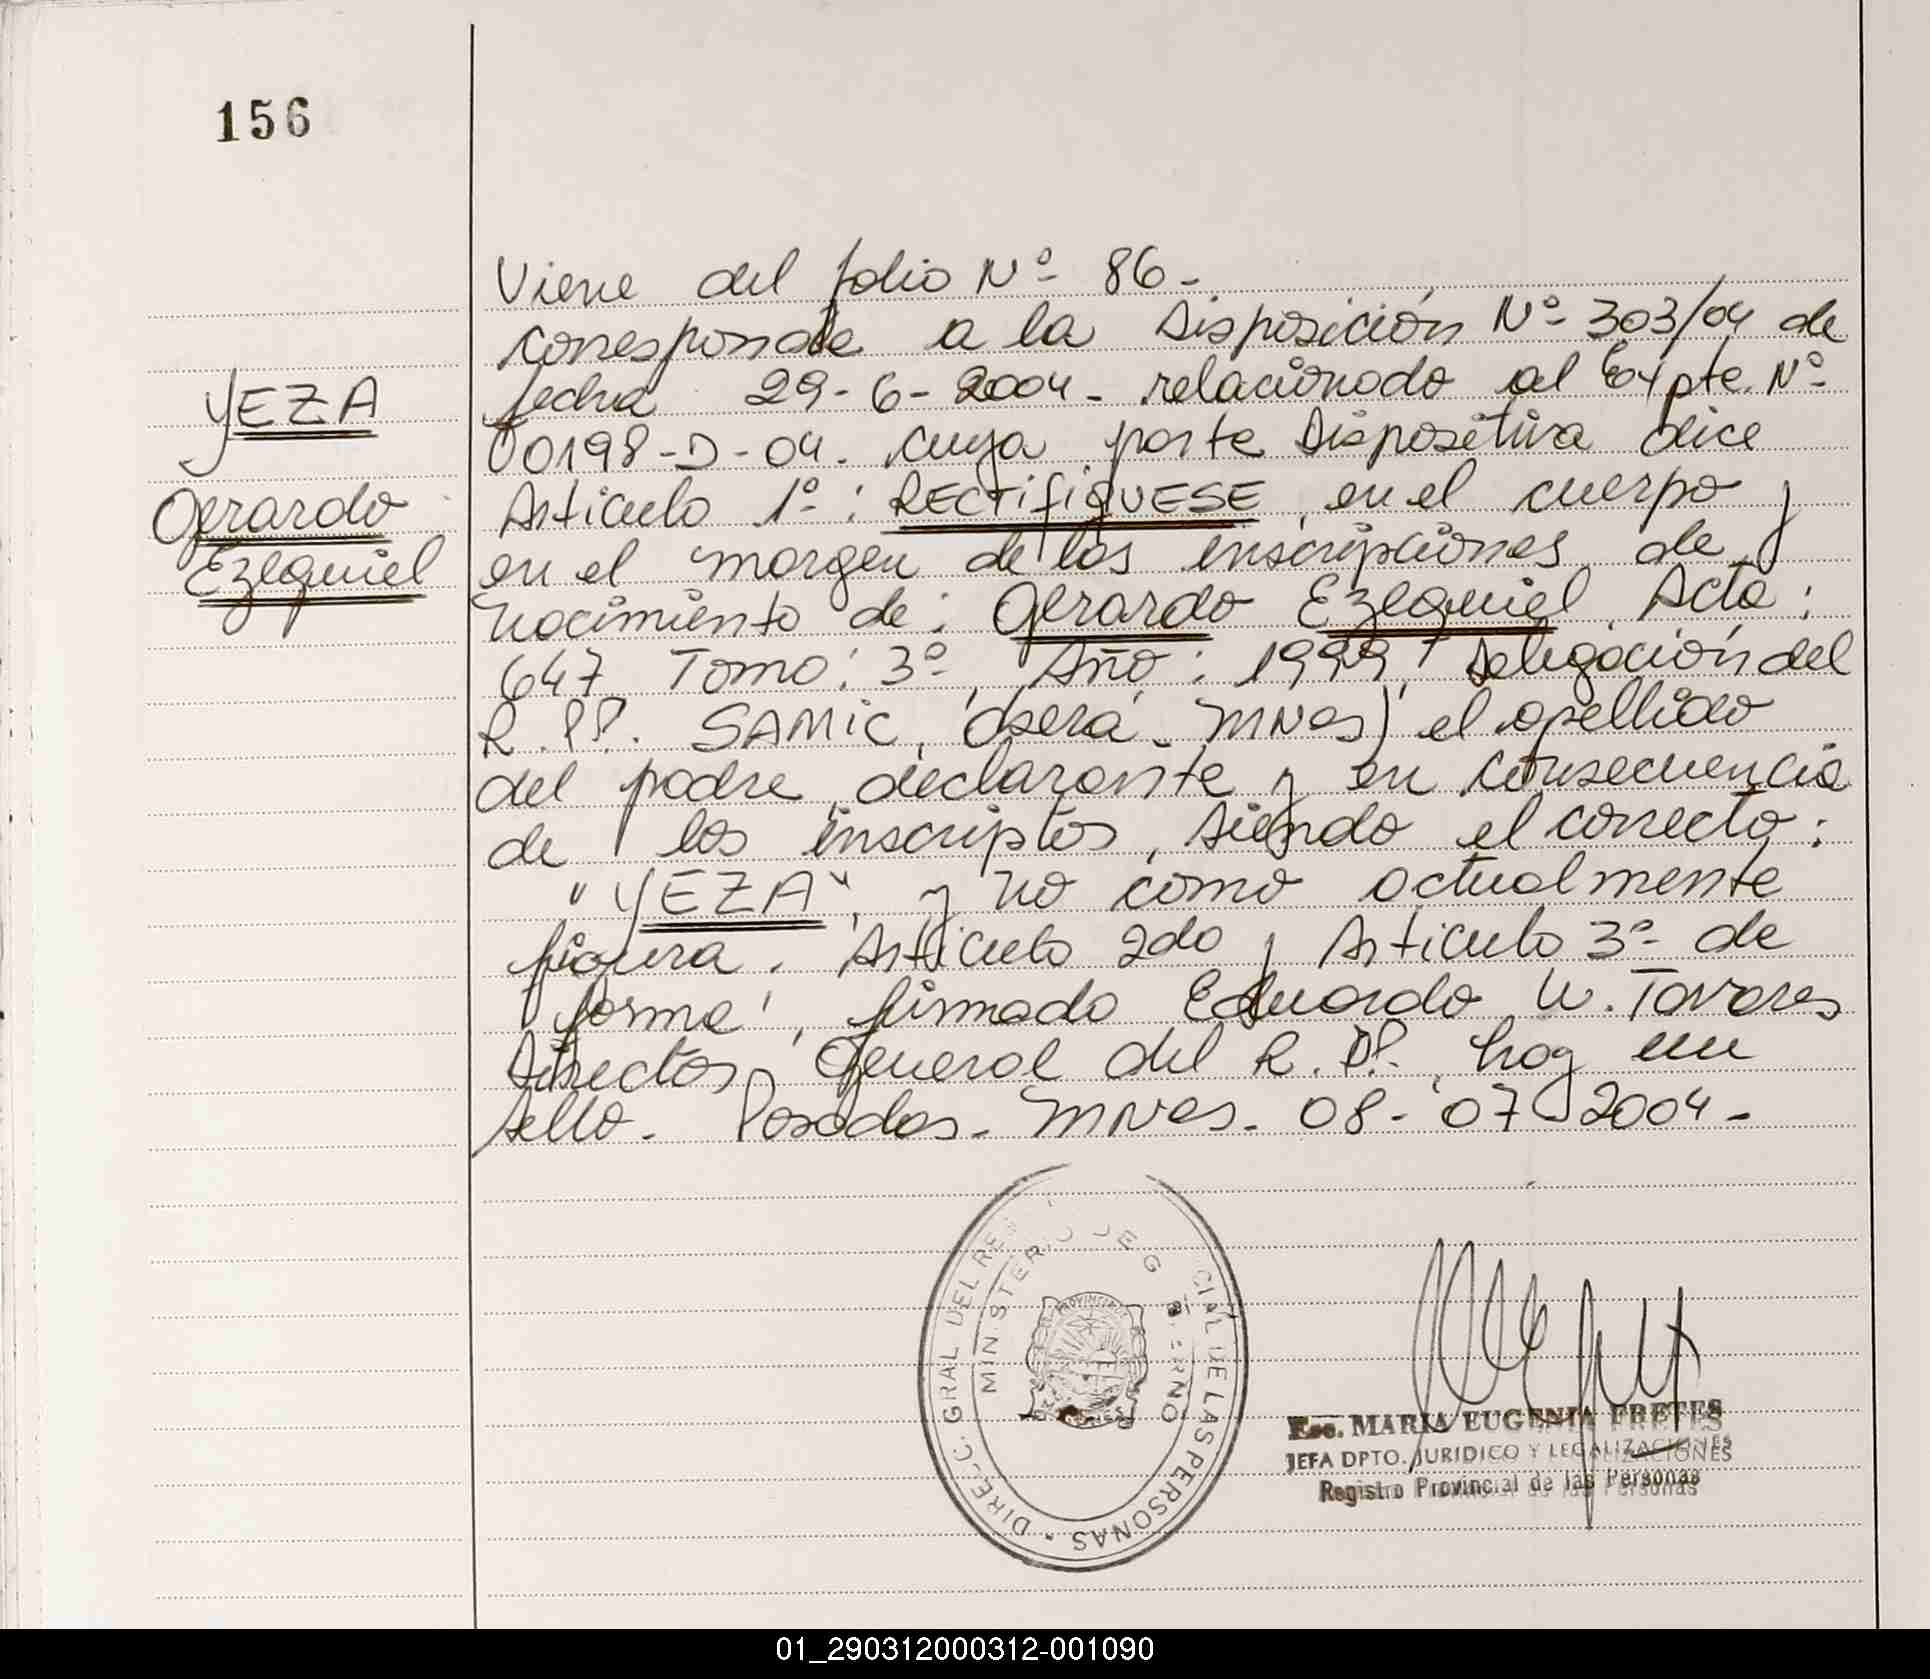 156
Viene del folio Nº 86-
corresponde a la Disposición Nº 303/04 de
fecha 29-6-2004- relacionado al Expte. Nº
00198-D-04. cuya parte Dispositiva dice
Articulo 1º: RECTIFIQUESE, en el cuerpo y
en el margen de los inscripciones de
nacimiento de: Gerardo Ezequiel, Acta:
647 Tomo: 3º, Año: 1999, Delegación del
R.PP. SAMIC, Oberá- MNes) el apellido
del padre declarante y en consecuencia
de los inscriptos, siendo el correcto:
"YEZA", y no como actualmente
figura. Articulo 2do y Articulo 3º de
forma, firmado Eduardo W. Tavares
Director General del R.PP., hay un
sello. Posadas- MNes- 08-07-2004-
YEZA
Gerardo
Ezequiel
DIREC. GRAL DEL RE CIAL DE LAS PERSONAS
MINISTERIO DE GOBIERNO
PROVINCIA
Esc. MARIA EUGENIA FRETES
JEFA DPTO. JURIDICO Y LEGALIZACIONES
Registro Provincial de las Personas
01_290312000312-001090